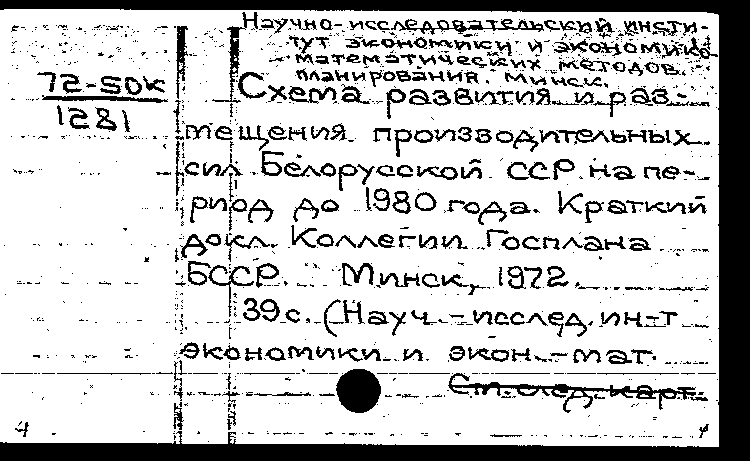 Научно-исследовательский инсти-
тут экономики и экономико-
математических методов
планирования. Минск.
72-50к
1281
Схема развития и раз-
мещения производительных
сил Белорусской ССР на пе-
риод до 1980 года. Краткий
докл. Коллегии Госплана
БССР. Минск, 1972.
39 с. (Науч.-исслед. ин-т
экономики и экон.-мат.
См. след. карт.